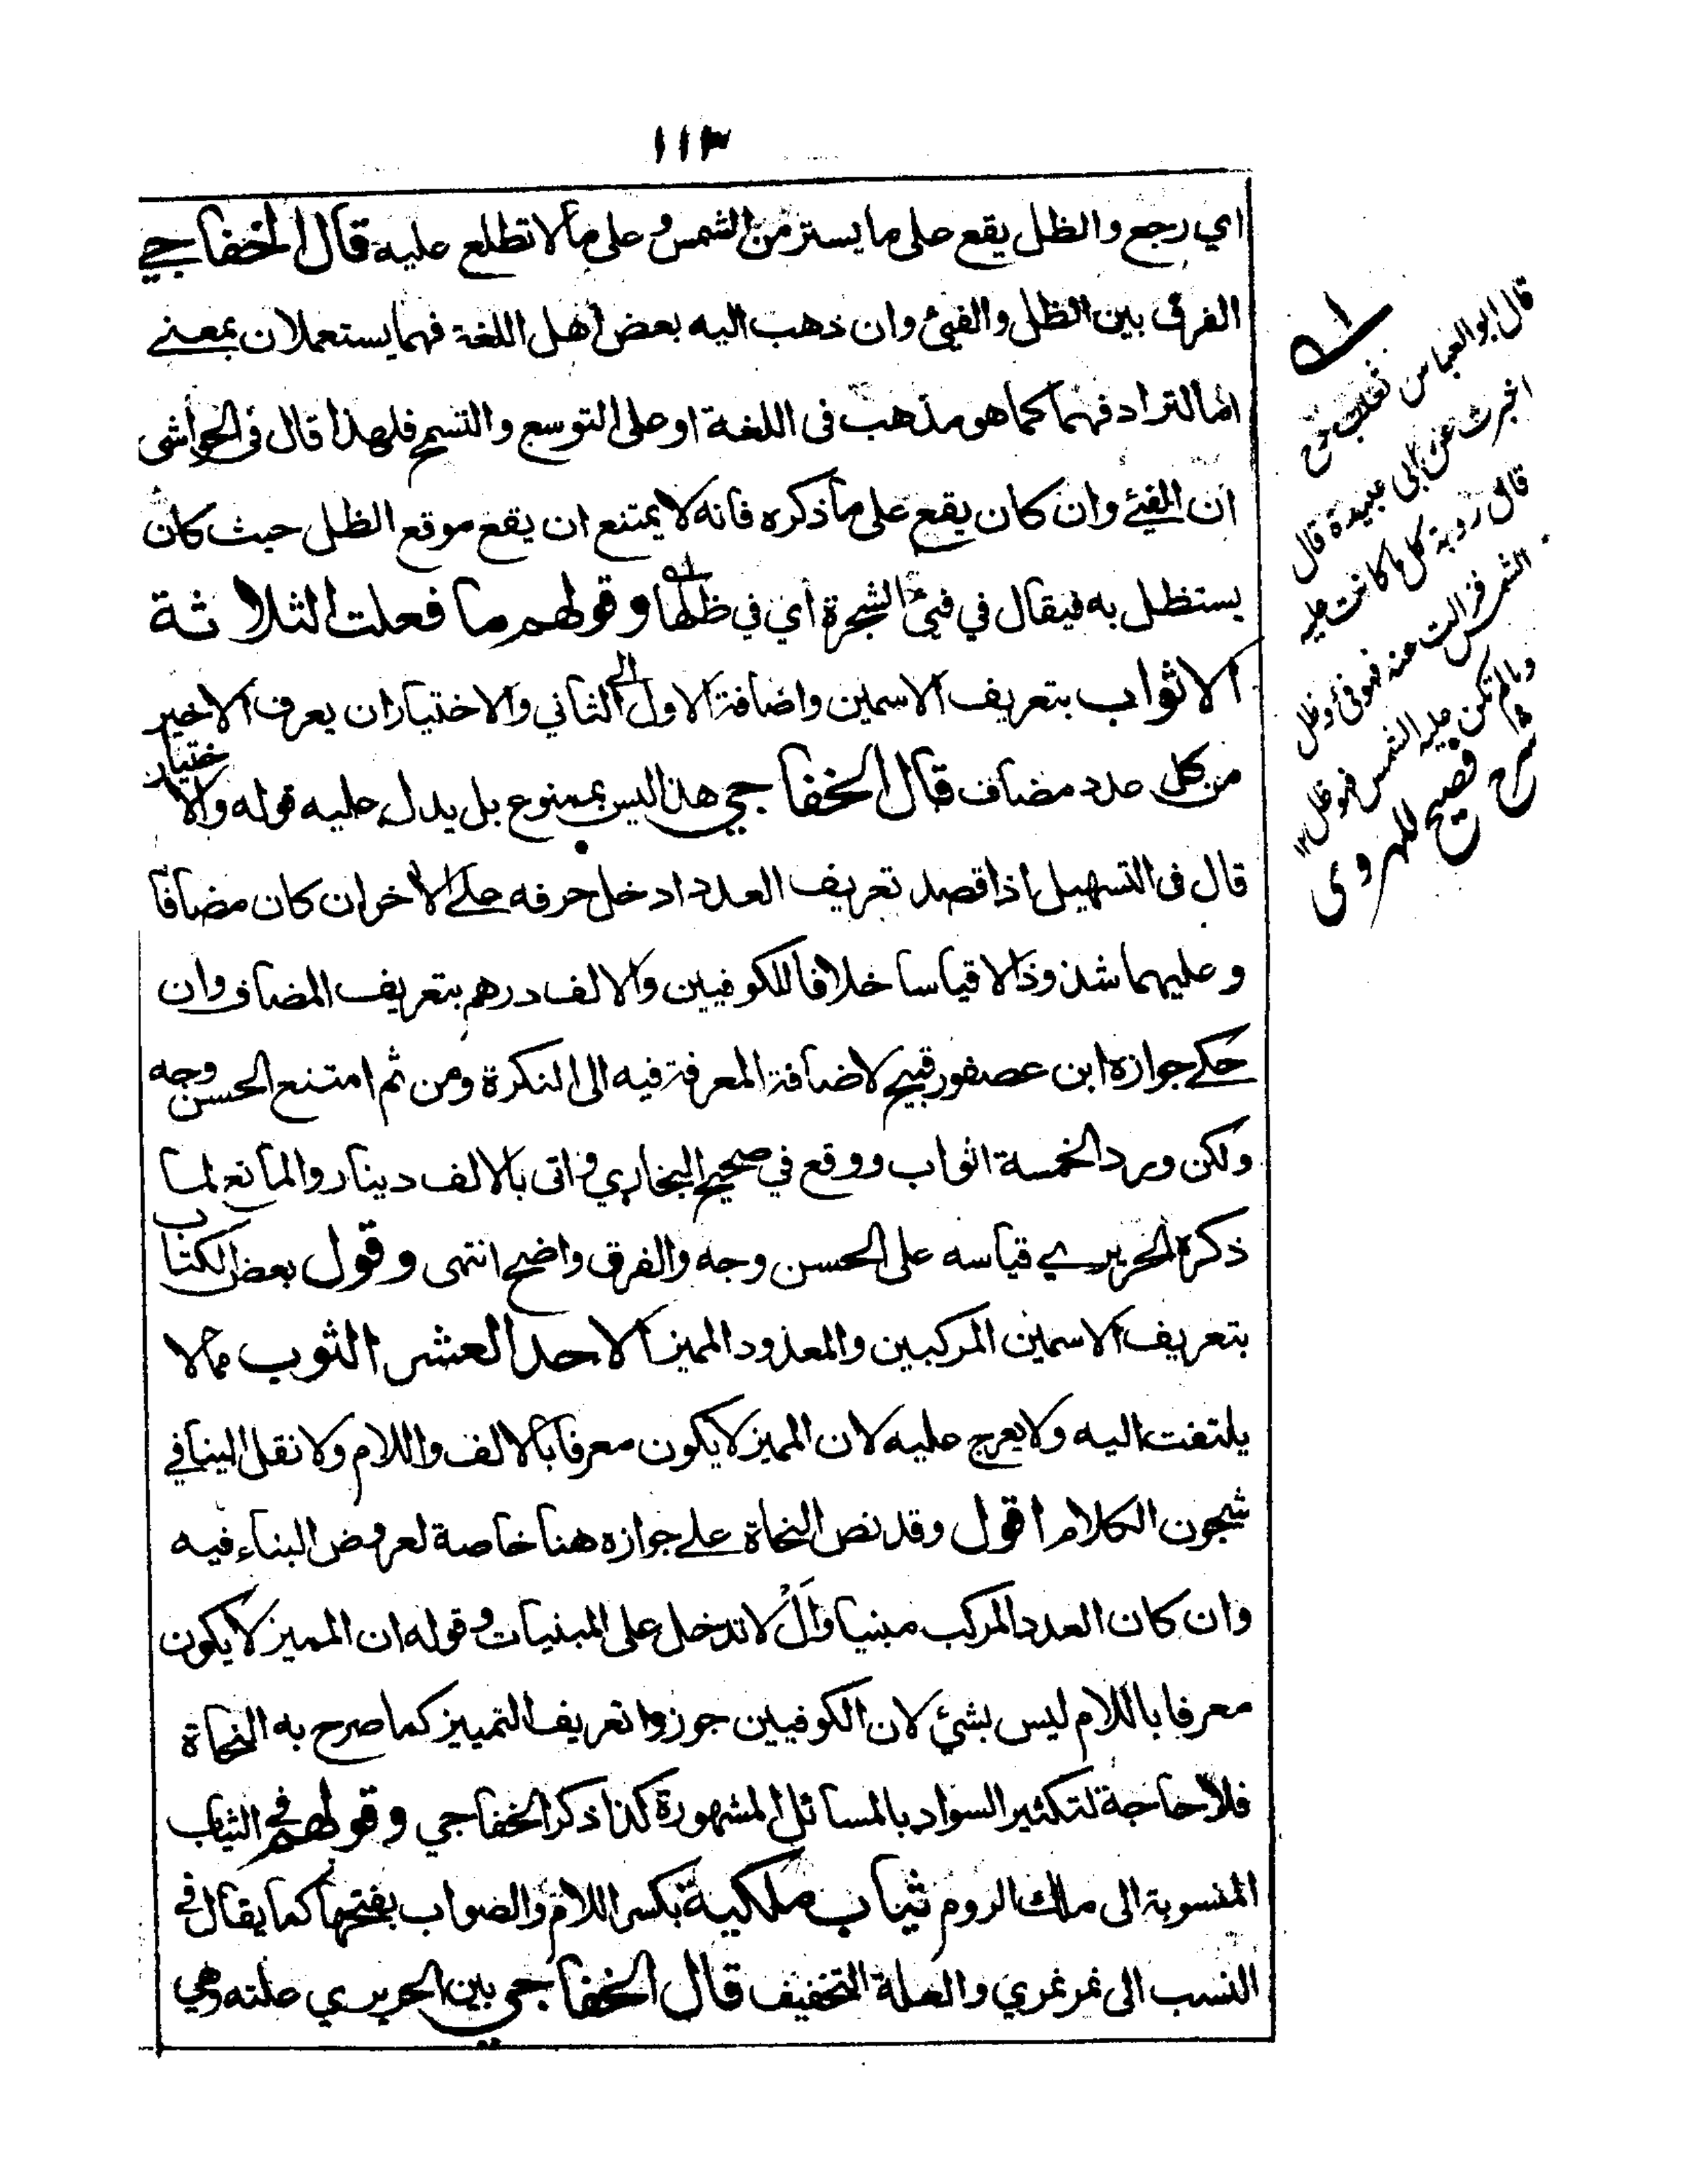 ١١٣
اي رجع والظل يقع على ما يستر من الشمس وعلى ما لا تطلع عليه قال الخفاجي
الفرق بين الظل والفيئ وان ذهب اليه بعض اهل اللغة فهما يستعملان بمعنے
اما الترادفهما كما هو مذهب فى اللغة او على التوسع والتسمح فلهذا قال فى الحواشى
ان الفيئ وان كان يقع على ما ذكره فانه لا يمتنع ان يقع موقع الظل حيث كان
يستظل به فيقال في فيئ الشجرة اي في ظلها وقولهم ما فعلت الثلاثة
الاثواب بتعريف الاسمين واضافة الاول الى الثاني والاختيار ان يعرف الاخير
من كل عدد مضاف قال الخفاجي هذا ليس بممنوع بل يدل عليه قوله والاختيار
قال فى التسهيل اذا قصد تعريف العدد ادخل حرفه علے الاخر ان كان مضافا
وعليهما شذوذا لا قياسا خلافا للكوفيين والالف درهم بتعريف المضاف وان
حكے جوازه ابن عصفور قبيح لاضافة المعرفة فيه الى النكرة ومن ثم امتنع الحسن وجه
ولكن ورد الخمسة اثواب ووقع في صحيح البخاري واتى بالالف دينار والمانع لما
ذكره الحريري قياسه على الحسن وجه والفرق واضح انتهى وقول بعض الكتاب
بتعريف الاسمين المركبين والمعدود المميز الاحد العشر الثوب مما لا
يلتفت اليه ولا يعرج عليه لان المميز لا يكون معرفا بالالف واللام ولا نقل الينا في
شجون الكلام اقول وقد نص النحاة علے جوازه هنا خاصة لعروض البناء فيه
وان كان العدد المركب مبنيا وَالْ لا تدخل على المبنيات وقوله ان المميز لا يكون
معرفا باللام ليس بشئ لان الكوفيين جوزوا تعريف التمييز كما صرح به النحاة
فلا حاجة لتكثير السواد بالمسائل المشهورة كذا ذكر الخفاجي وقولهم في الثياب
المنسوبة الى ملك الروم ثياب ملكية بكسر اللام والصواب بفتحها كما يقال في
النسب الى نمر نمري والعلة التخفيف قال الخفاجي بين الحريري علته وهي
قال ابو العباس ثعلب
اخبرت عن ابى عبيدة قال
قال روبة كل ما كانت عليه
الشمس فزالت عنه فهو فئ وظل
وما لم تكن عليه الشمس فهو ظل ١٢
شرح فصيح للهروى